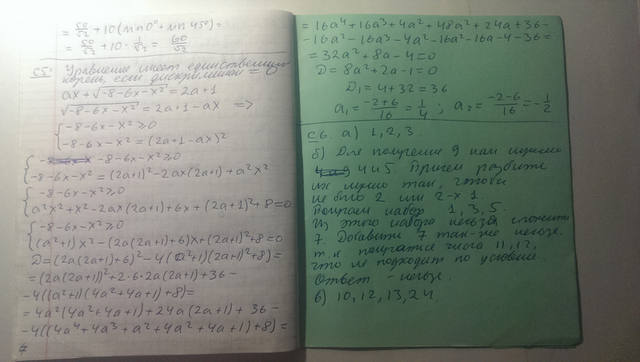 = 50/√2 + 10(sin 0° + sin 45°) =
= 50/√2 + 10 · 1/√2 = 60/√2
C5. Уравнение имеет единственный
корень, если дискриминант = 0
ax + √-8-6x-x² = 2a+1
√-8-6x-x² = 2a+1-ax =>
{ -8-6x-x² ≥ 0
-8-6x-x² = (2a+1-ax)²
{ -8-6x-x² ≥ 0
-8-6x-x² = (2a+1)² - 2ax(2a+1) + a²x²
{ -8-6x-x² ≥ 0
a²x² + x² - 2ax(2a+1) + 6x + (2a+1)² + 8 = 0
{ -8-6x-x² ≥ 0
(a²+1)x² - (2a(2a+1)+6)x + (2a+1)² + 8 = 0
D = (2a(2a+1)+6)² - 4(a²+1)((2a+1)²+8) =
= (2a(2a+1))² + 2·6·2a(2a+1) + 36 -
- 4((a²+1)(4a²+4a+1)+8) =
= 4a²(4a²+4a+1) + 24a(2a+1) + 36 -
- 4((4a⁴+4a³+a²+4a²+4a+1)+8) =
= 16a⁴+16a³+4a²+48a²+24a+36-
-16a⁴-16a³-4a²-16a²-16a-4-36=
= 32a²+8a-4=0
D = 8a²+2a-1=0
D₁ = 4+32=36
a₁ = -2+6/16 = 1/4 ; a₂ = -2-6/16 = -1/2
C6. а) 1, 2, 3.
б) Для получения 9 нам нужно
4 и 5. Причем разбить
их нужно так, чтобы
не было 2 или 2-х 1.
Получаем набор 1, 3, 5.
Из этого набора нельзя сложить
7. Добавить 7 также нельзя.
т.к. получатся числа 11, 12,
что не подходит по условию.
Ответ - нельзя.
в) 10, 12, 13, 24.